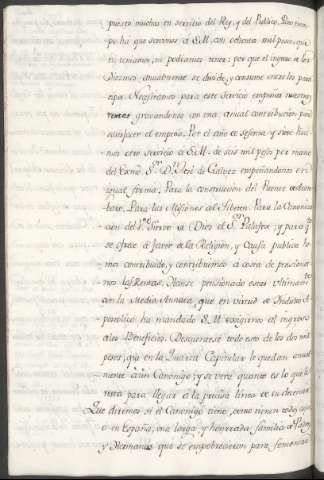 puesto muchas en servicio del Rey, y del Publico. Poco tiem-
po ha que servimos a S.M. con ochenta mil pesos, que
ni teniamos, ni podiamos tener: por que el ingreso de los
Diezmos, anualmente se divide, y consume entre los parti-
cipes. Necesitamos para este servicio empeñar nuestras
rentas gravandonos con una anual contribucion para
satisfacer el empeño. Por el año de sesenta, y siete hici-
mos otro servicio a S.M. de seis mil pesos por mano
del Exmo. Sr. Dn. José de Galvez empeñandonos en
igual forma. Para la construccion del Puente
Para las Misiones Para la Canoniza-
cion del Siervo de Dios el Sr. Palafox; y para qto.
se ofrece a favor de la Religion, y causa publica he-
mos contribuido, y contribuimos a costa de pensionar-
nos las Rentas. Hanse pensionado estas ultimamte.
con la Media Annata, que en virtud de Indulto A-
postolico ha mandado S.M. exigirnos al ingreso
a los Beneficios. Descuentese todo esto de los dos mil
pesos, que en la Quarta Capitular le quedan anual-
mente a un Canonigo; y se verá quanto es lo que le
resta para llegar a la precisa linea de su decencia.
Que diremos si el Canonigo tiene, como tienen todos, aqui
o en España, una larga, y honrrada familia de Padres,
y Hermanos que se empobrecieron para fomentar